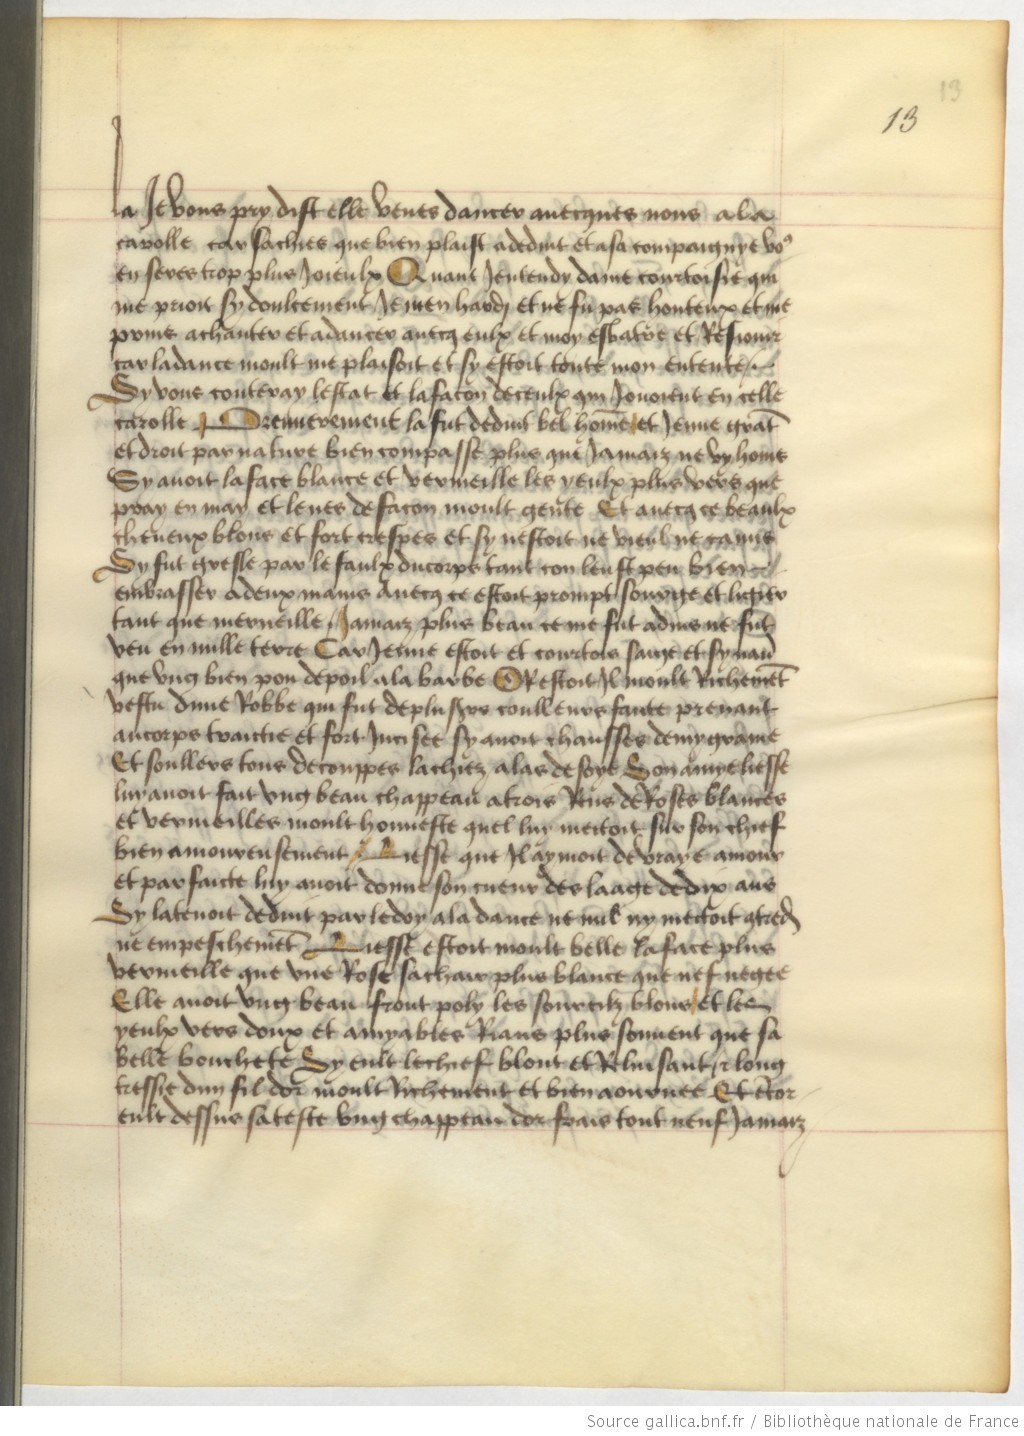 13
13
la Je vous pry dist elle venes dancer avecques nous a la
carolle car sachies que bien plaist a deduit et a sa compaignye vo9
en seres trop plus Joieulx Quant Jentendy dame courtoisie qui
me prioit sy doulcement Je men hardi et ne fu pas honteux et me
prins a chanter et a dancer avecq eulx et moy esbatre et Resiouir
car la dance moult me plaisoit et sy estoit toute mon entente
Sy vous conteray lestat et la facon de ceulx qui Jouoient en celle
carolle Premierement la fut deduit bel home et Jenne grat
et droit par nature bien compasse plus que Jamaiz ne vy home
Sy avoit la face blance et vermeille les yeulx plus vers que
pray en may et le nes de facon moult gente Et avecq ce beaulx
cheveux blons et fort crespes et sy nestoit ne vieul ne camus
Sy fut gresle par le faulx du corps tant con leust peu bien
embrasser a deux mains Avecq ce estoit prompt souvige et ligier
tant que merveille Jamaiz plus beau ce me fut advis ne fut
veu en nulle terre Car Jenne estoit et courtois saige et sy navoit
que ung bien pou de poil a la barbe Or estoit Il moult Richemet
vestu dune Robbe qui fut de plusrs coulleurs faicte prenant
au corps traictie et fort Incisee sy avoit chausses demy graine
Et soullers tous decouppes lachiez a las de soye Son amye liesse
luy avoit fait ung beau chappeau a trois Rens de Roses blances
et vermeilles moult honneste quel luy mectoit sur son chief
bien amoureusement Liesse que Il aymoit de vraye amour
et parfaicte luy avoit donne son cueur des laage de dix ans
Sy la tenoit deduit par le doy a la dance ne nul ny mectoit
ne empeschemet Liesse estoit moult belle la face plus
vermeille que une Rose sa chair plus blance que nef negee
Elle avoit ung beau front poly les sourcilz blons et les
yeulx vers doux et amyables Rians plus souvent que sa
belle bouchete Sy eult le chief blont et Reluisant et long
tressie dun fil dor moult Richement et bien aournee Et
eult dessus sa teste ung chappeau dor frais tout neuf Jamaiz
Source gallica.bnf.fr / Bibliothèque nationale de France